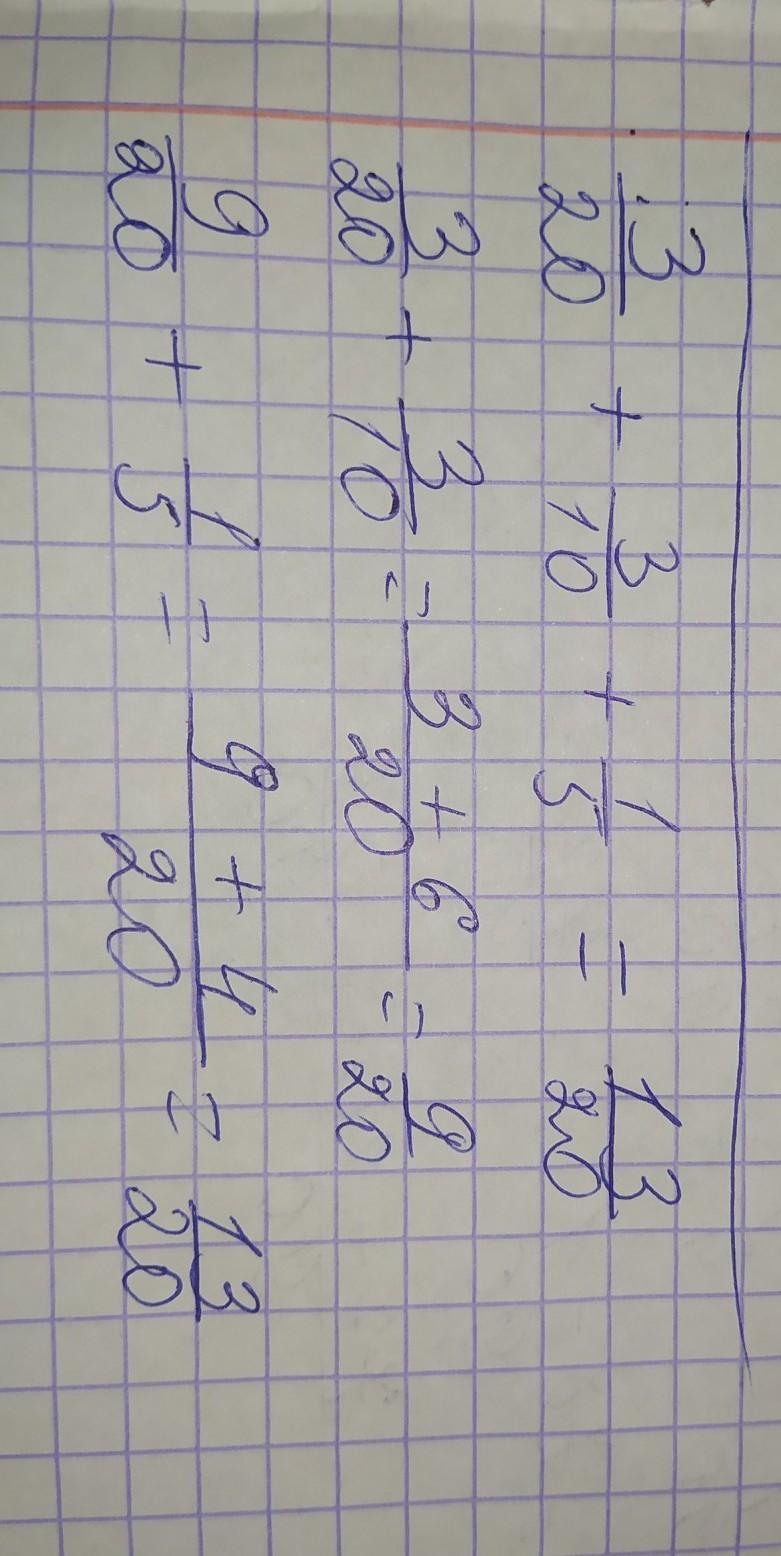 3/20 + 3/10 + 1/5 = 13/20
3/20 + 3/10 = 3 + 6/20 = 9/20
9/20 + 1/5 = 9 + 4/20 = 13/20